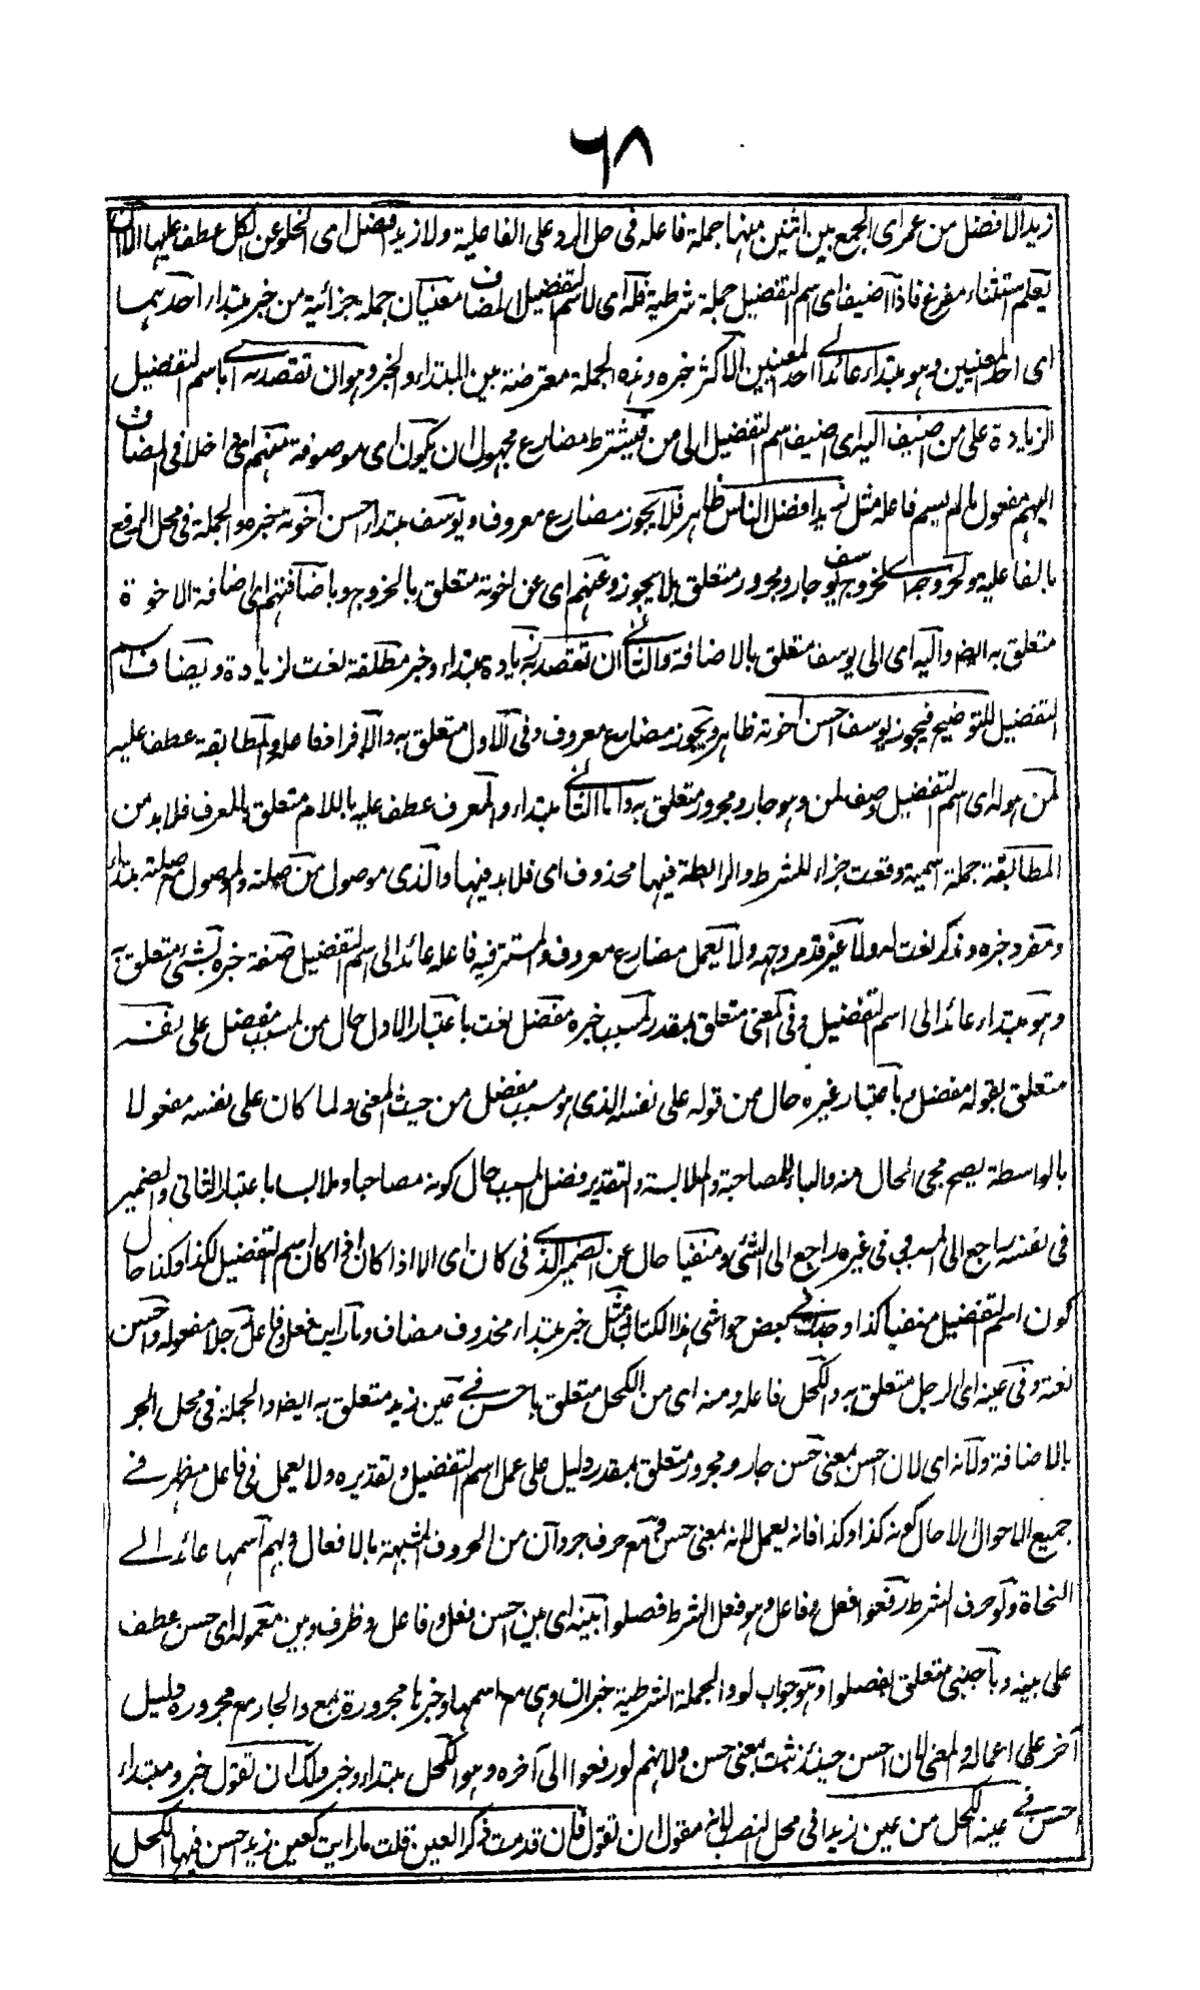 ٦٨
زيد الافضل من عمر اى الجمع بين اثنين منها جملة فاعله فى محل الرد على الفاعلية ولا زيد افضل اى الخلو عن الكل عطف عليها الا ان
يعلم استثناء مفرغ فاذا اضيف اى اسم التفضيل جملة شرطية فله اى لاسم التفضيل المضاف معنيان جملة جزائية من خبر مبتداء احدهما
اى احد المعنيين وهو مبتداء عائد الى احد المعنيين الاكثر خبره وهذه الجملة معترضة بين المبتداء والخبر وهو ان تقصد به اى باسم التفضيل
الزيادة على من اضيف اليه اى اضيف اسم التفضيل الى من فيشترط مضارع مجهول ان يكون اى موصوفه منهم اى داخلا فى المضاف
اليهم مفعول ما لم يسم فاعله مثل زيد افضل الناس ظاهر فلا يجوز مضارع معروف ويوسف مبتداء احسن اخوته خبره والجملة فى محل الرفع
بالفاعلية ولخروجه اى لخروج يوسف جار ومجرور متعلق بلا يجوز وعنهم اى عن اخوته متعلق بالخروج وباضافتهم اى اضافة الاخوة
متعلق به ايضا واليه اى الى يوسف متعلق بالاضافة والثانى ان تقصد به زيادة مبتداء وخبر مطلقة نعت لزيادة ويضاف اسم
التفضيل للتوضيح فيجوز يوسف احسن اخوته ظاهر ويجوز مضارع معروف وفى الاول متعلق به والافراد فاعله والمطابقة عطف عليه
لمن هو له اى اسم التفضيل وصف لمن وهو جار ومجرور متعلق به واما الثانى مبتداء والمعرف عطف عليه باللام متعلق بالمعرف فلا بد من
المطابقة جملة اسمية وقعت جزاء للشرط والرابطة فيها محذوف اى فلا بد فيها والذى موصول من صلته والموصول مع صلته مبتداء
ومفرد خبره ومذكر نعت له ولا غير قد مر وجهه ولا يعمل مضارع معروف والمستتر فيه فاعله عائد الى اسم التفضيل صفة خبره لشئ متعلق به
وهو مبتداء عائد الى اسم التفضيل وفى المعنى متعلق بمقدر لمسبب خبره مفضل نعت باعتبار الاول حال من لمسبب مفضل على نفسه
متعلق بقوله مفضل وباعتبار غيره حال من قوله على نفسه الذى هو مسبب مفضل من حيث المعنى ولما كان على نفسه مفعولا
بالواسطة يصح مجئ الحال منه والباء للمصاحبة والملابسة والتقدير فضل المسبب حال كونه مصاحبا وملابسا باعتبار الثانى والضمير
فى نفسه راجع الى المسبب وفى غيره راجع الى الشئ ومنفيا حال عن الضمير الذى فى كان اى الا اذا كان اذا كان اسم التفضيل لكذا وكذا حال
كون اسم التفضيل منفيا كذا وجدت فى بعض حواشى هذا الكتاب مثل خبر مبتداء محذوف مضاف وما رأيت فعل وفاعل رجلا مفعوله واحسن
نعته وفى عينه اى الرجل متعلق به والكحل فاعله ومنه اى من الكحل متعلق باحسن فى عين زيد متعلق به ايضا والجملة فى محل الجر
بالاضافة ولانه اى لان احسن بمعنى حسن جار ومجرور متعلق بمقدر دليل على عمل اسم التفضيل وتقديره ولا يعمل فى فاعل مظهر فى
جميع الاحوال الا حال كونه كذا وكذا فانه يعمل لانه بمعنى حسن ومع حرف جر وان من الحروف المشبهة بالافعال وهم اسمها عائد الى
النحاة ولو حرف الشرط رفعوا فعل وفاعل وهو فعل الشرط فصلوا بينه اى بين احسن فعل وفاعل وظرف وبين معموله اى حسن عطف
على بينه وباجنبى متعلق بفصلوا وهو جواب لو والجملة الشرطية خبر ان وهى مع اسمها وخبرها مجرورة بمع والجار مع مجروره دليل
آخر على اعماله والمعنى لان احسن حينئذ ثبت بمعنى حسن ولانهم لو رفعوا الى آخره وهو الكحل مبتداء وخبر ولك ان تقول خبر ومبتداء
احسن فى عينه الكحل من عين زيد فى محل النصب لانه مفعول ان تقول فان قدمت ذكر العين قلت ما رايت كعين زيد احسن فيها الكحل